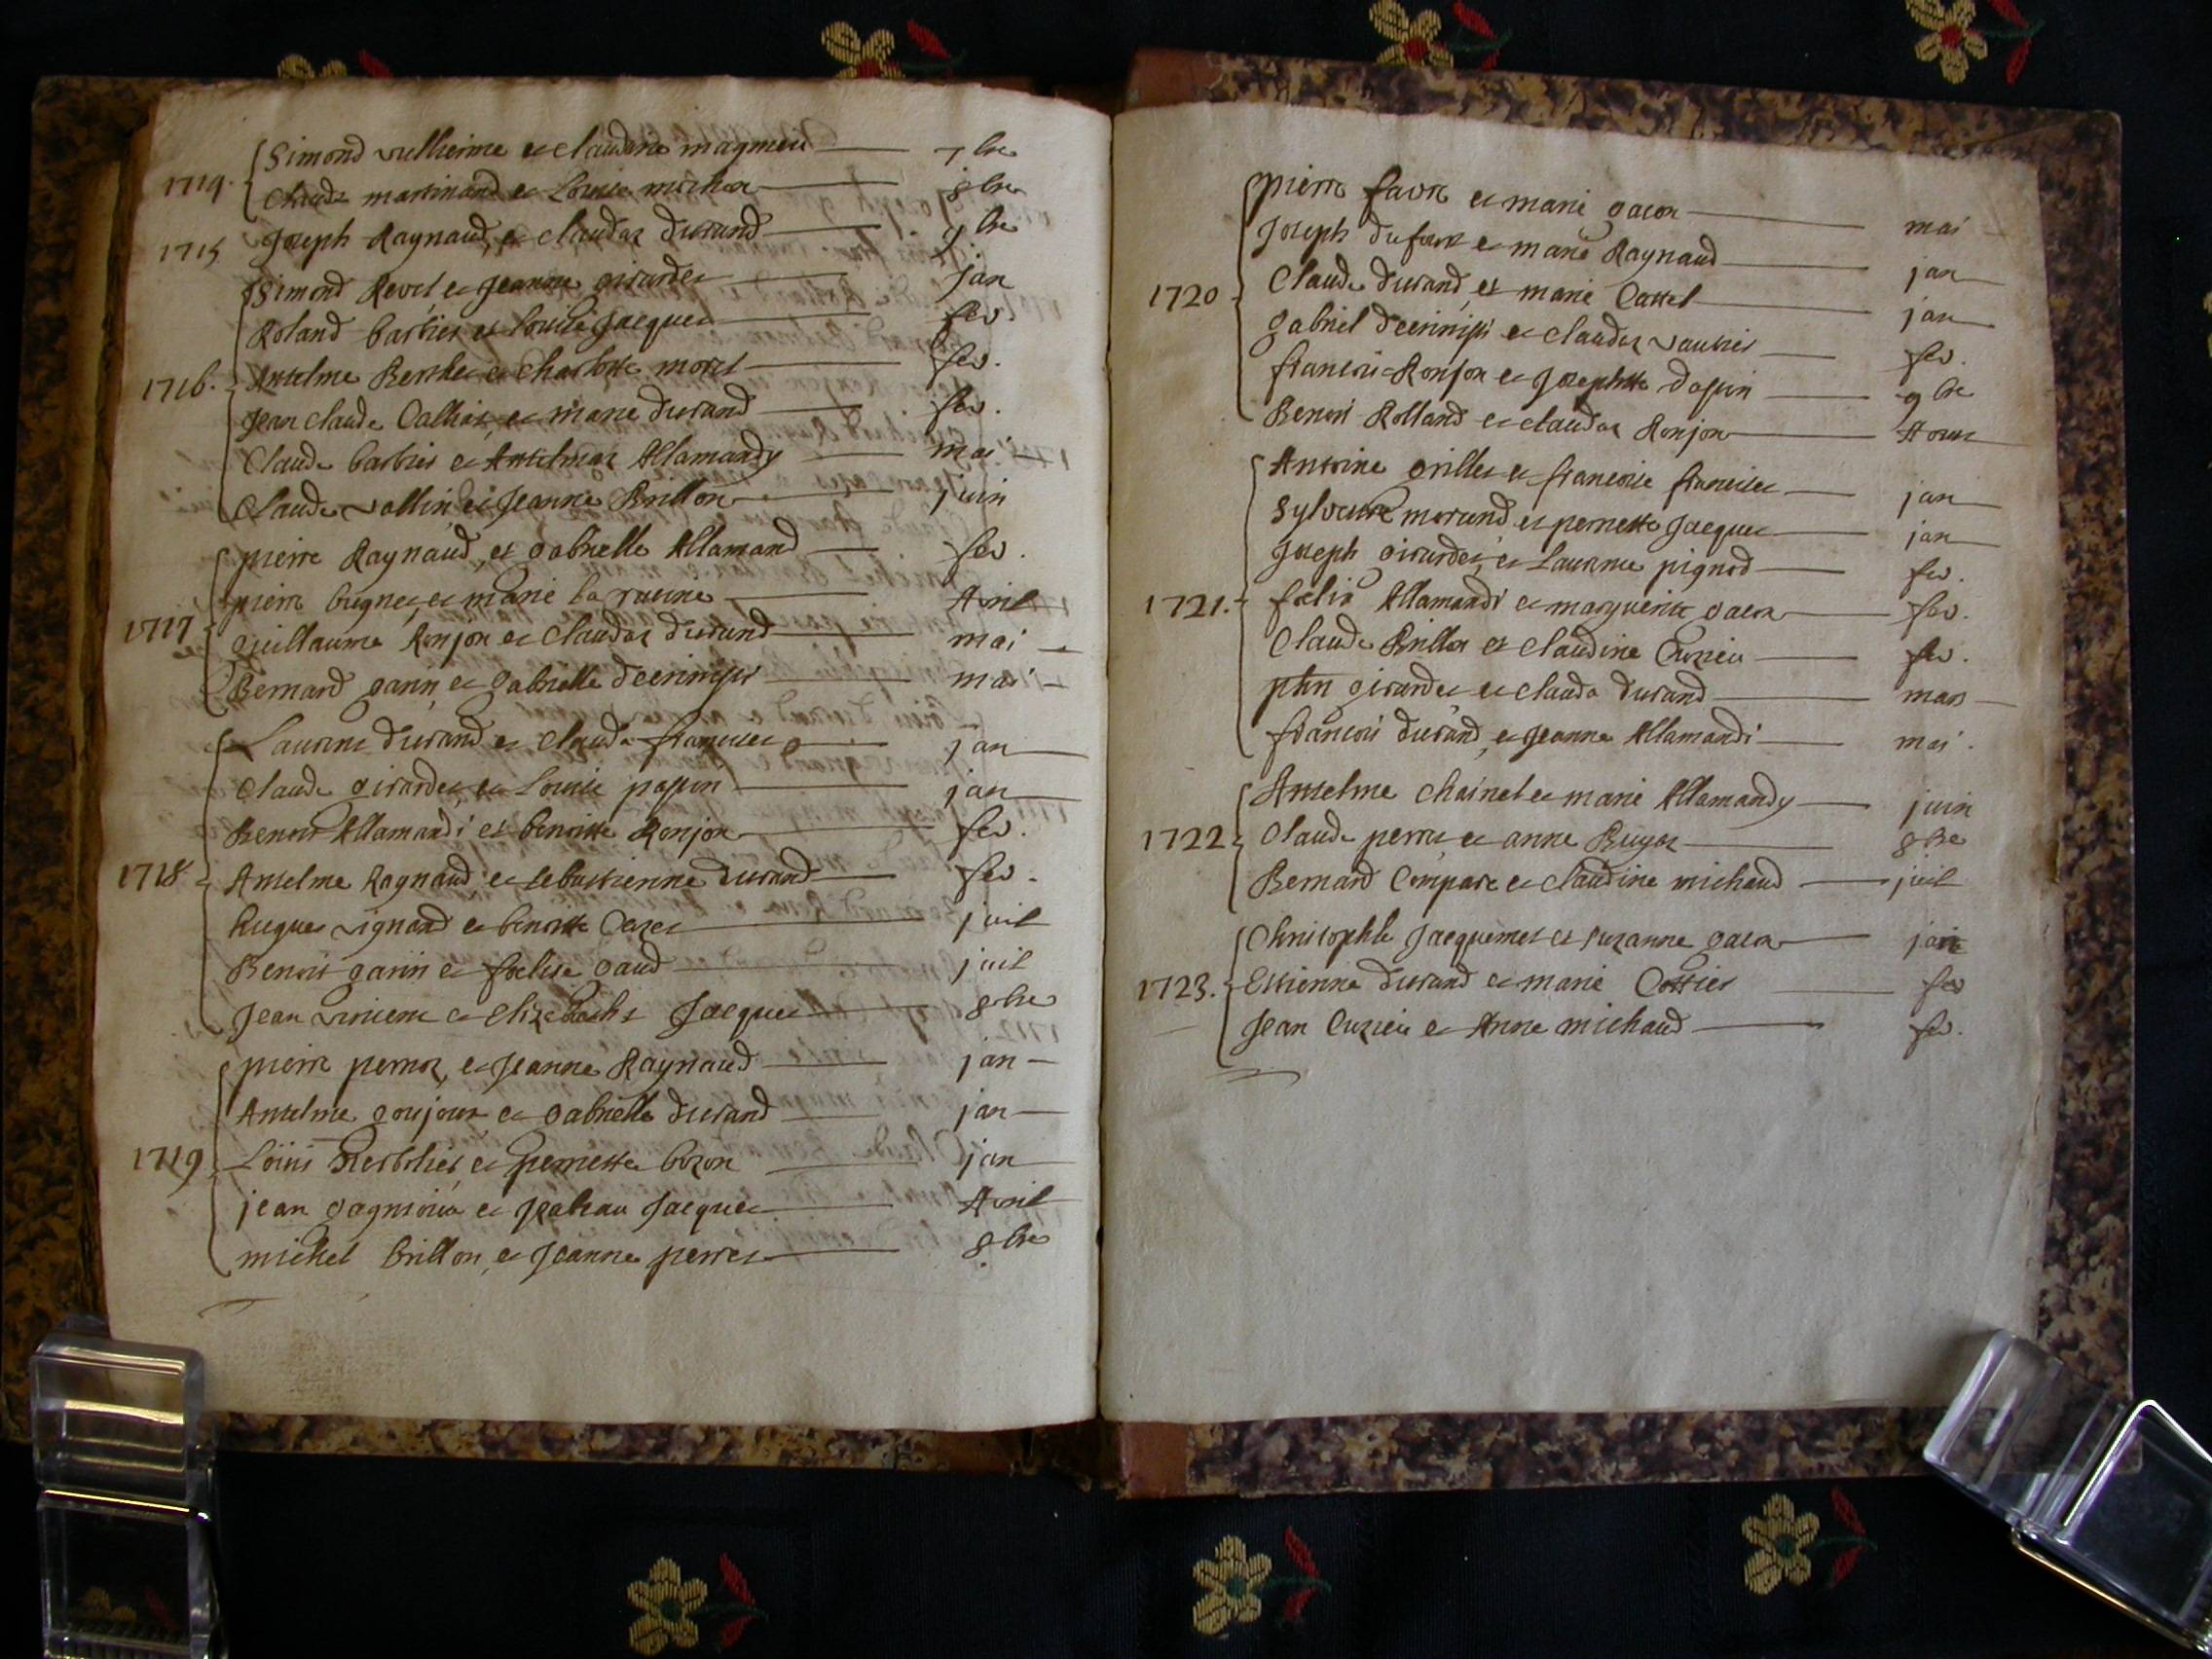 1714. Simond vullierme et claudine magnieu 7bre
Claude martinand et Louise 8bre
1715 Joseph Raynaud et claudaz durand 9bre
Simond Revel et Jeanne girardet jan
Roland barbier et Louise Jacquet fev.
1716. Antelme Berthet et Charlotte morel fev.
Jean claude Calliat et marie durand fev.
Claude barbier et Antelmaz Allamandy mai
Claude vollin et Jeanne Brillon juin
pierre Raynaud et gabrielle Allamand fev.
pierre bugnet et marie la ravine Avril
1717 guillaume Ronjon et claudaz durand mai
Bernard garin et gabrielle mai
Laurent durand et claude francillet jan
Claude girardet et Louise papin jan
Benoit Allamandi et benoitte Ronjon fev.
1718 Antelme Raynaud et sebastienne durand fev.
hugues vignand et benoitte juil
Benoit garin et foelise gaud juil
Jean et Elizabeth Jacquet 8bre
pierre pernoz et Jeanne Raynaud jan
Antelme goujout et gabrielle durand jan
1719 Louis et pernette bozon jan
jean et Isabeau Jacquet Avril
michel brillon et Jeanne perret 8bre
pierre favre et marie gacon mai
Joseph dufour et marie Raynaud jan
1720 Claude durand et marie Cattel jan
gabriel et claudaz vautier fev.
francois Ronjon et Josephtte dapvin 9bre
Benoit Rolland et claudaz Ronjon Aout
Antoine grillet et francoise francillet jan
Sylvestre morand et pernette Jacquet jan
Joseph girardet et Laurence pignod fev.
1721. foelix Allamandi et marguerite gacon fev.
Claude Brillon et Claudine Curzieu fev.
phn girardet et clauda durand mars
francois durand et Jeanne Allamandi mai.
Antelme chainel et marie Allamandy juin
1722 Claude perret et anne Buyat 8bre
Bernard Compare et claudine michaud juil
Christophle Jacquemet et suzanne gacon jan
1723. Estienne durand et marie Cottier fev
Jean Curzieu et Anne michaud fev.